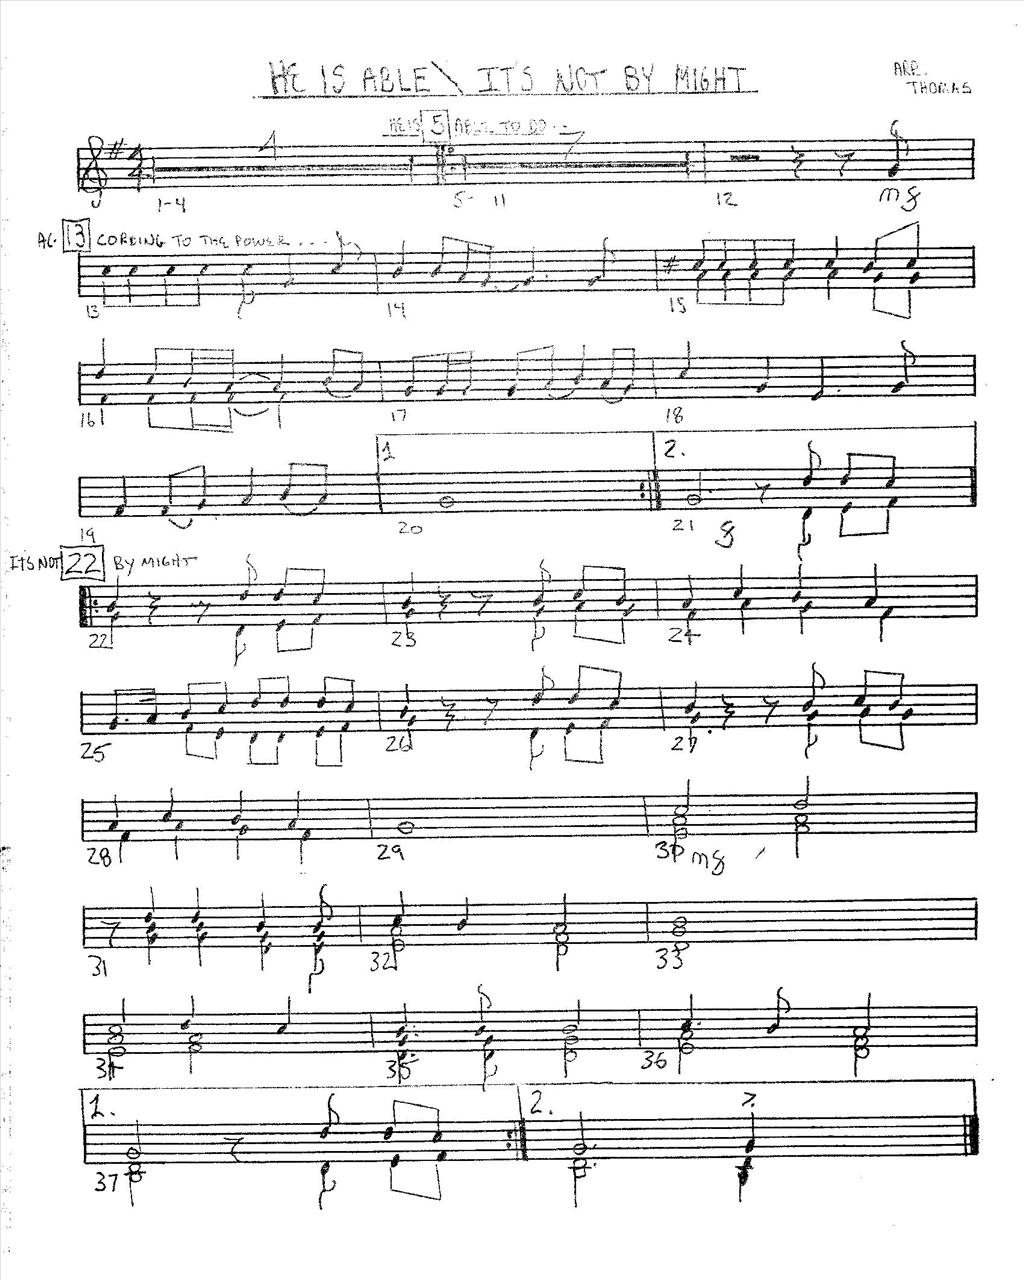 HE IS ABLE \ IT'S NOT BY MIGHT
ARR.
THOMAS
HE IS 5 ABLE TO DO...
4 7
4
4
1-4 5- 11 12 mf
AC- 13 CORDING TO THE POWER...
13 14 15
16 17 18
1. 2.
19 20 21 f
IT'S NOT 22 BY MIGHT
22 23 24
25 26 27
28 29 30 mf
31 32 33
34 35 36
1. 2.
37